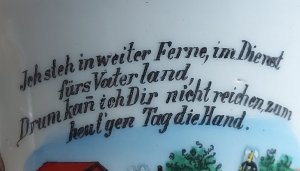 Ich steh in weiter Ferne, im Dienst
fürs Vaterland,
Drum kan̅ ich Dir nicht reichen zum
heut'gen Tag die Hand.